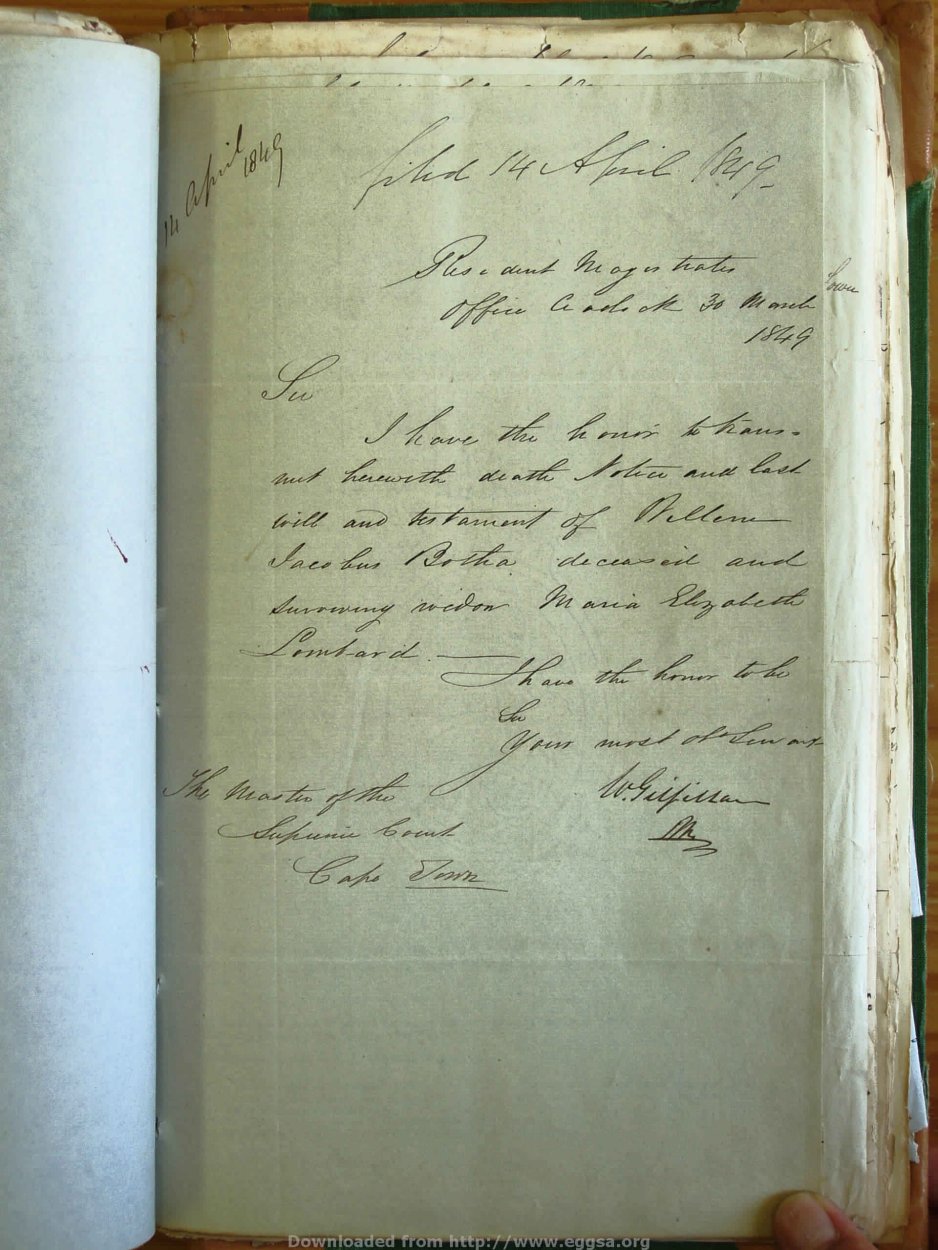 14 April 1849
filed 14 April 1849
Resident Magistrates
Office Cradock 30 March
1849
Sir
I have the honor to trans-
mit herewith death Notice and last
will and testament of Willem
Jacobus Botha deceased and
surviving widow Maria Elizabeth
Lombard.
I have the honor to be
Sir
Your most obt Servant
W. Gilfillan
RM
The Master of the
Supreme Court
Cape Town
Downloaded from http://www.eggsa.org